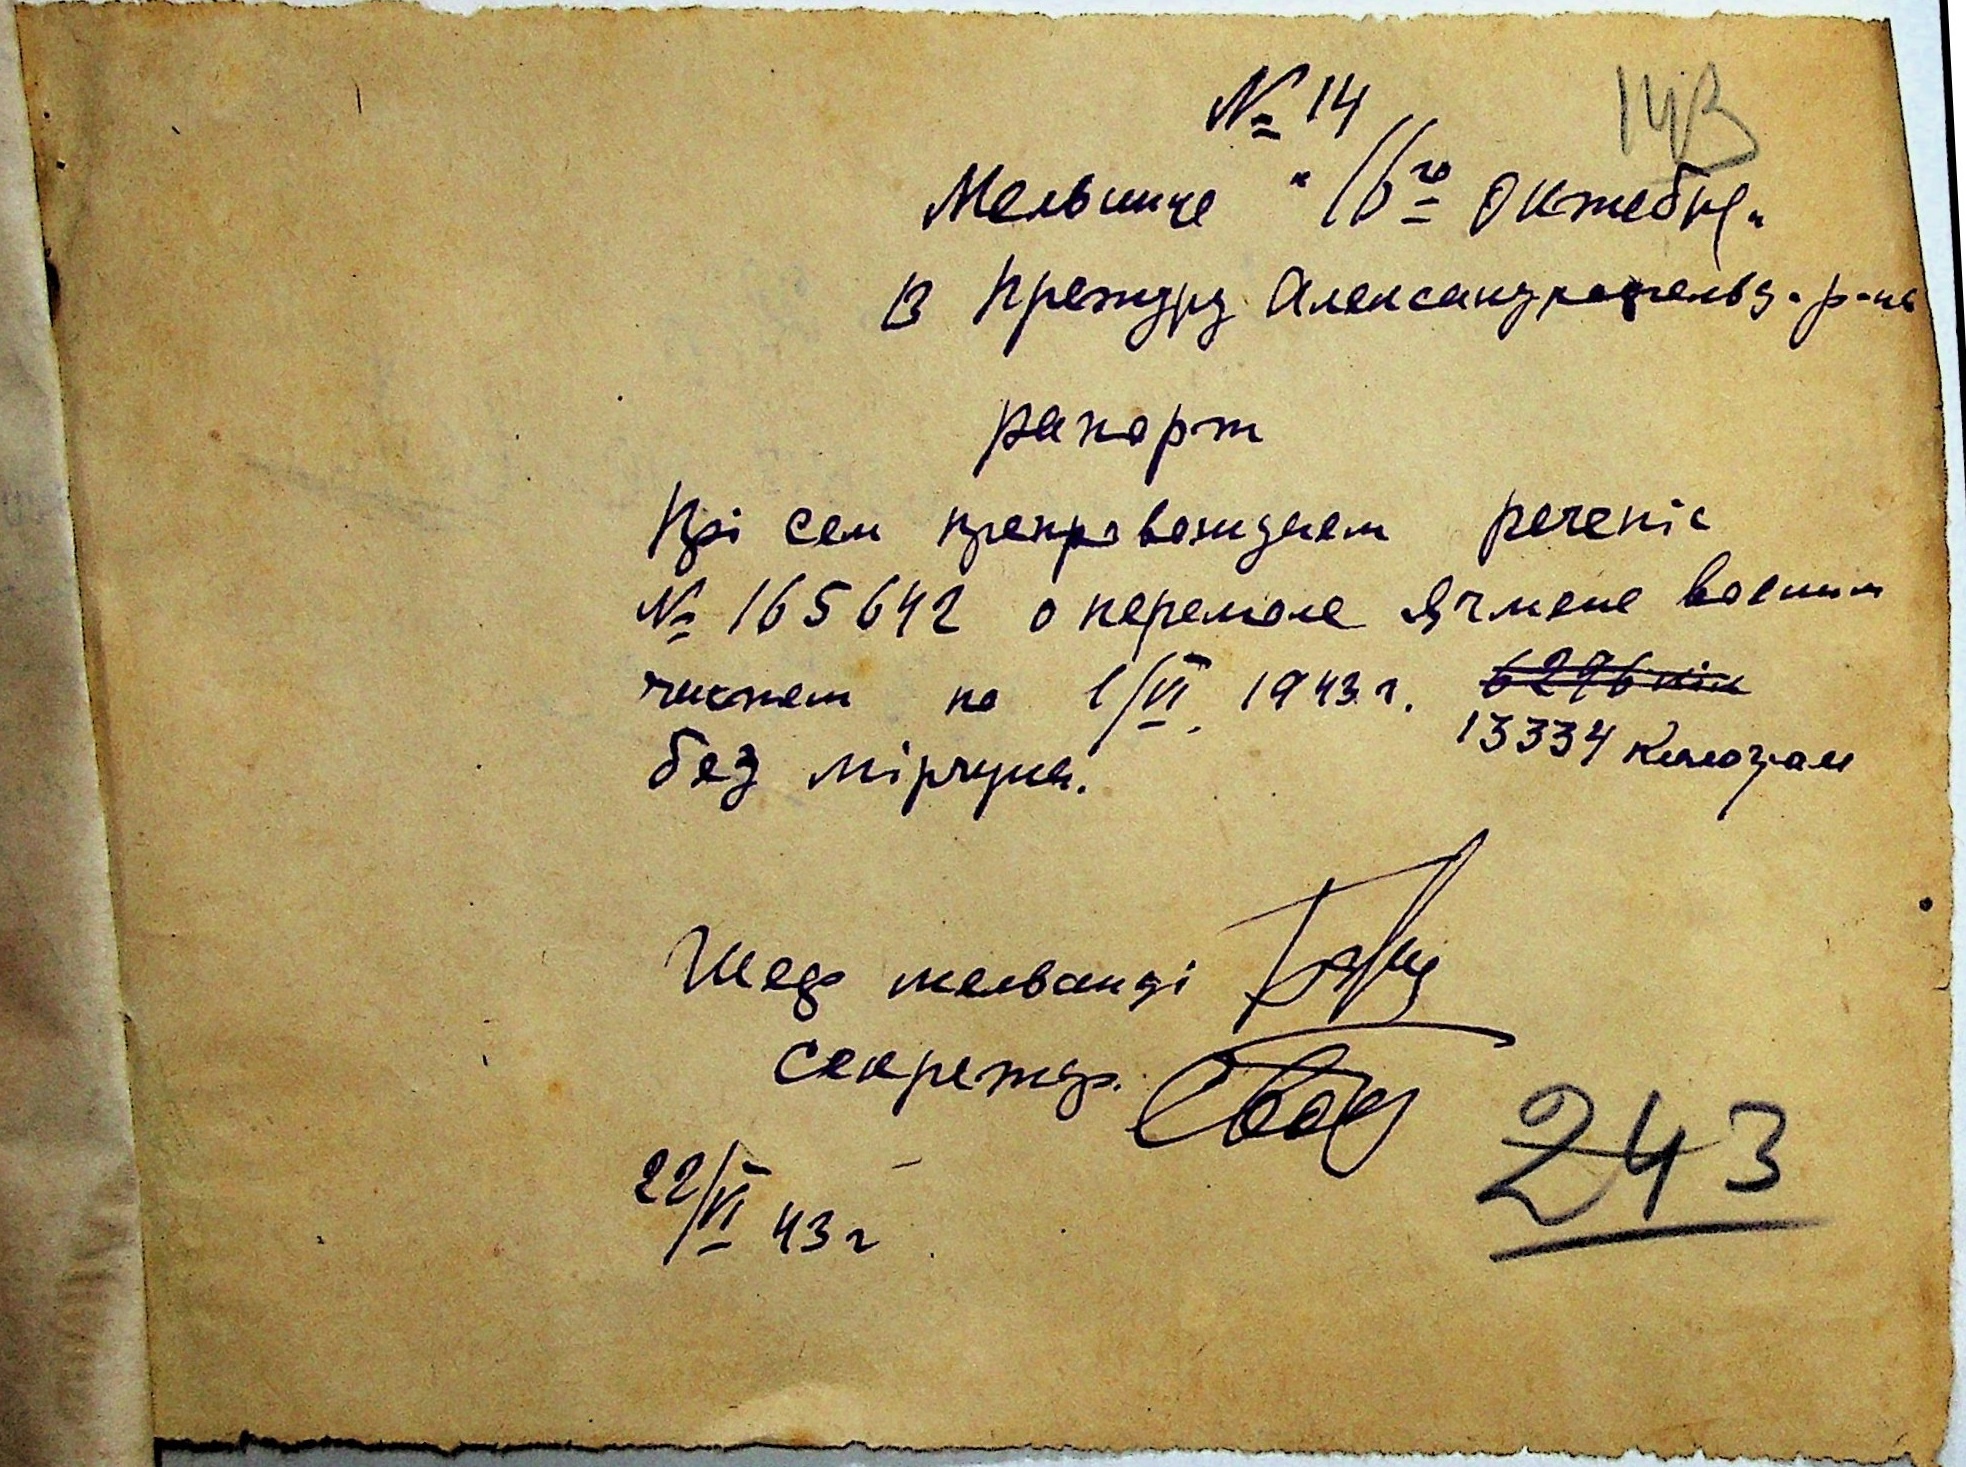 № 14
143
Мельнице "16го Октебре"
В Претуру Александрфельд. р-на
рапорт
Прі сем препровождаем речепіс
№ 165642 о перемоле ячмене военым
частем по 1/VI 1943 г. 6276 кіл
13334 килограм
без мірчука.
Шеф мельвиці
секретар.
22/VI 43 г
243